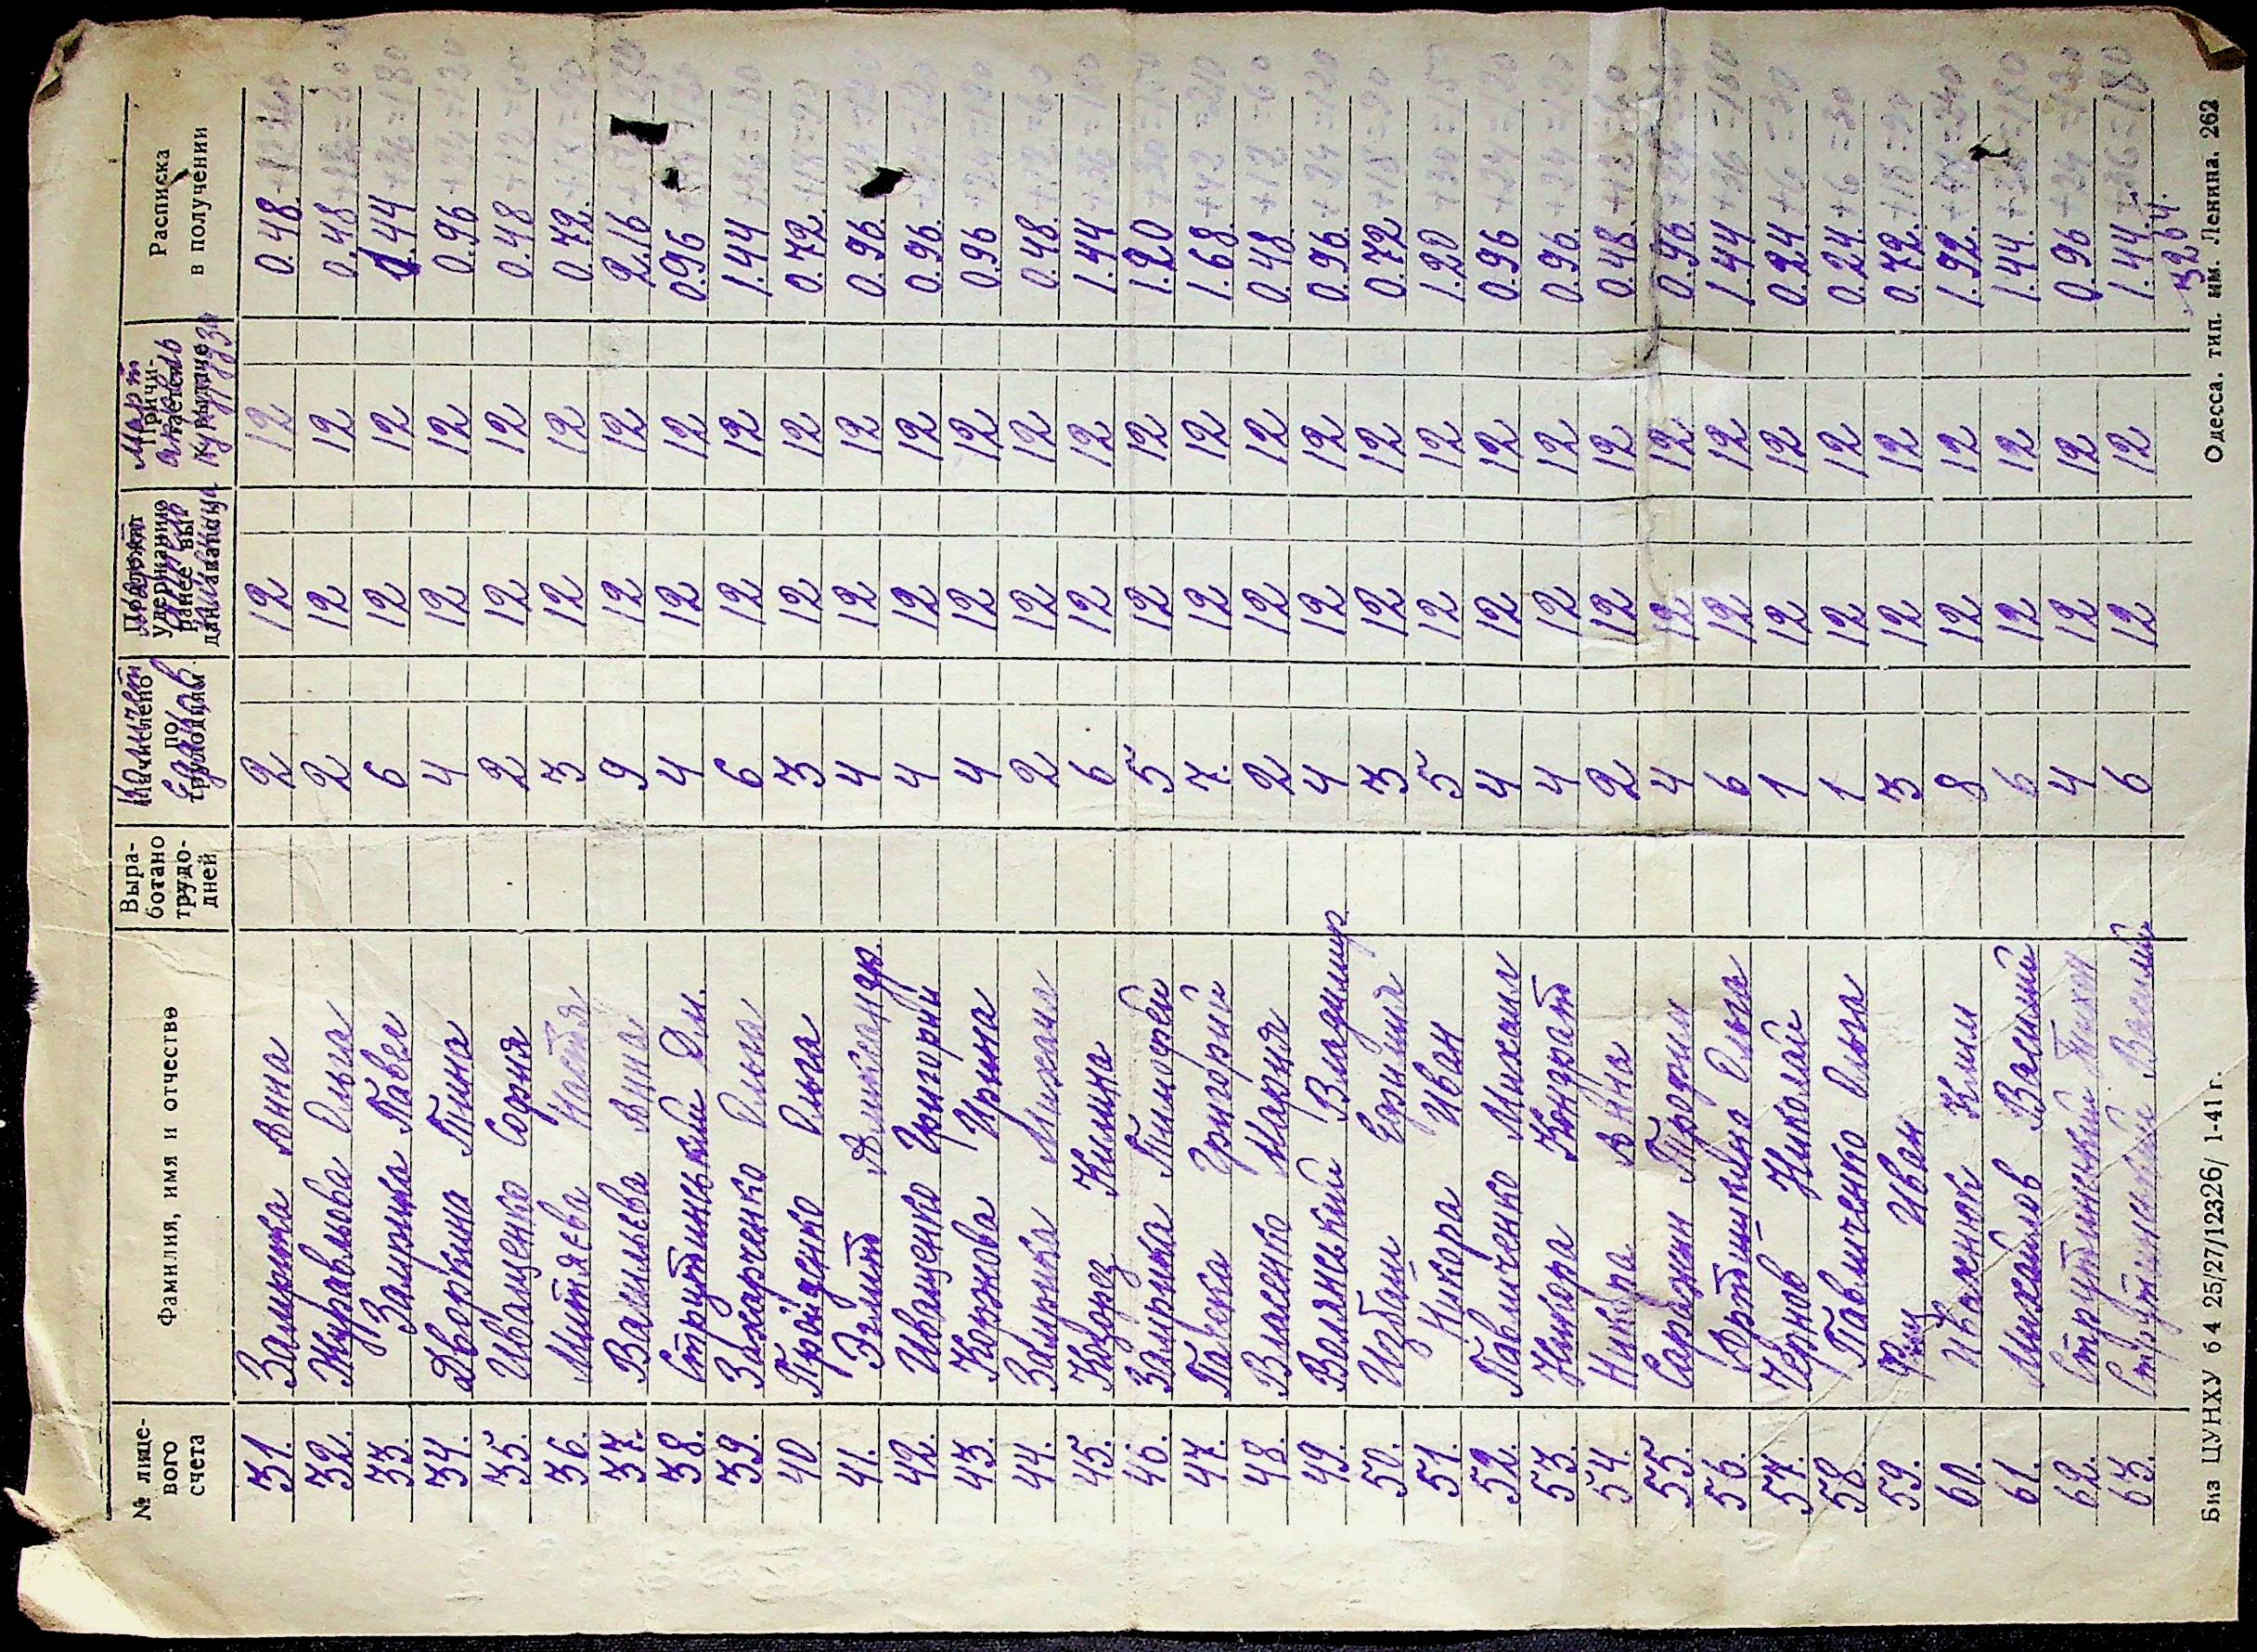 № лицевого счета | Фамилия, имя и отчество | Выработано трудодней | Начислено по трудодням | Подлежит удержанию ранее выдан. | Причитается к выдаче | Расписка в получении
Количест Едоков | Март апрель Кукурузы
31. Замрика Анна 2 12 12 0.48
32. Журавлева Ольга 2 12 12 0.48
33. Замрика Павел 6 12 12 1.44 +36=180
34. Дворкина 4 12 12 0.96 +24=120
35. Иващенко София 2 12 12 0.48 +12=60
36. Митяева Настя 3 12 12 0.72
37. Васильева Анна 9 12 12 2.16
38. Струтинський Дм. 4 12 12 0.96
39. Захарченко Ольга 6 12 12 1.44 +36=180
40. Ольга 3 12 12 0.72 +18=90
41. Александр 4 12 12 0.96
42. Иващенко Григорий 4 12 12 0.96
43. Ирина 4 12 12 0.96
44. Замрика Михаил 2 12 12 0.48 +12=60
45. 6 12 12 1.44 +36=180
46. Замрика Тимофей 5 12 12 1.20 +30=150
47. Григорий 7 12 12 1.68 +42=210
48. Власенко Мария 2 12 12 0.48 +12=60
49. Волянський Владимир 4 12 12 0.96 +24=120
50. 3 12 12 0.72 +18=90
51. Никора Иван 5 12 12 1.20 +30=150
52. Павличенко Михаил 4 12 12 0.96 +24=120
53. Никора Кондрат 4 12 12 0.96 +24=120
54. Никора Анна 2 12 12 0.48
55. 4 12 12 0.96
56. Ольга 6 12 12 1.44 +36=180
57. Чернов Николай 1 12 12 0.24 +6=30
58. Павличенко Ольга 1 12 12 0.24 +6=30
59. Иван 3 12 12 0.72 +18=90
60. Ивахнюк Клим 8 12 12 1.92
61. Михайлов Василий 6 12 12 1.44
62. Струтинский Тихон 4 12 12 0.96 +24
63. Струтинский Василий 6 12 12 1.44 +36=180
Биз ЦУНХУ 64 25/27/12326/ 1-41 г.
Одесса. тип. им. Ленина. 262